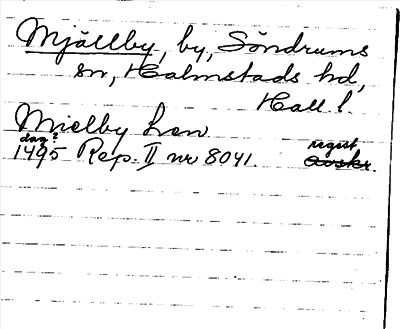 Mjällby, by, Söndrums
sn, Halmstads hd,
Hall l.
Mielby
dat?
1495 Rep. II nr 8041.
regest
avskr.